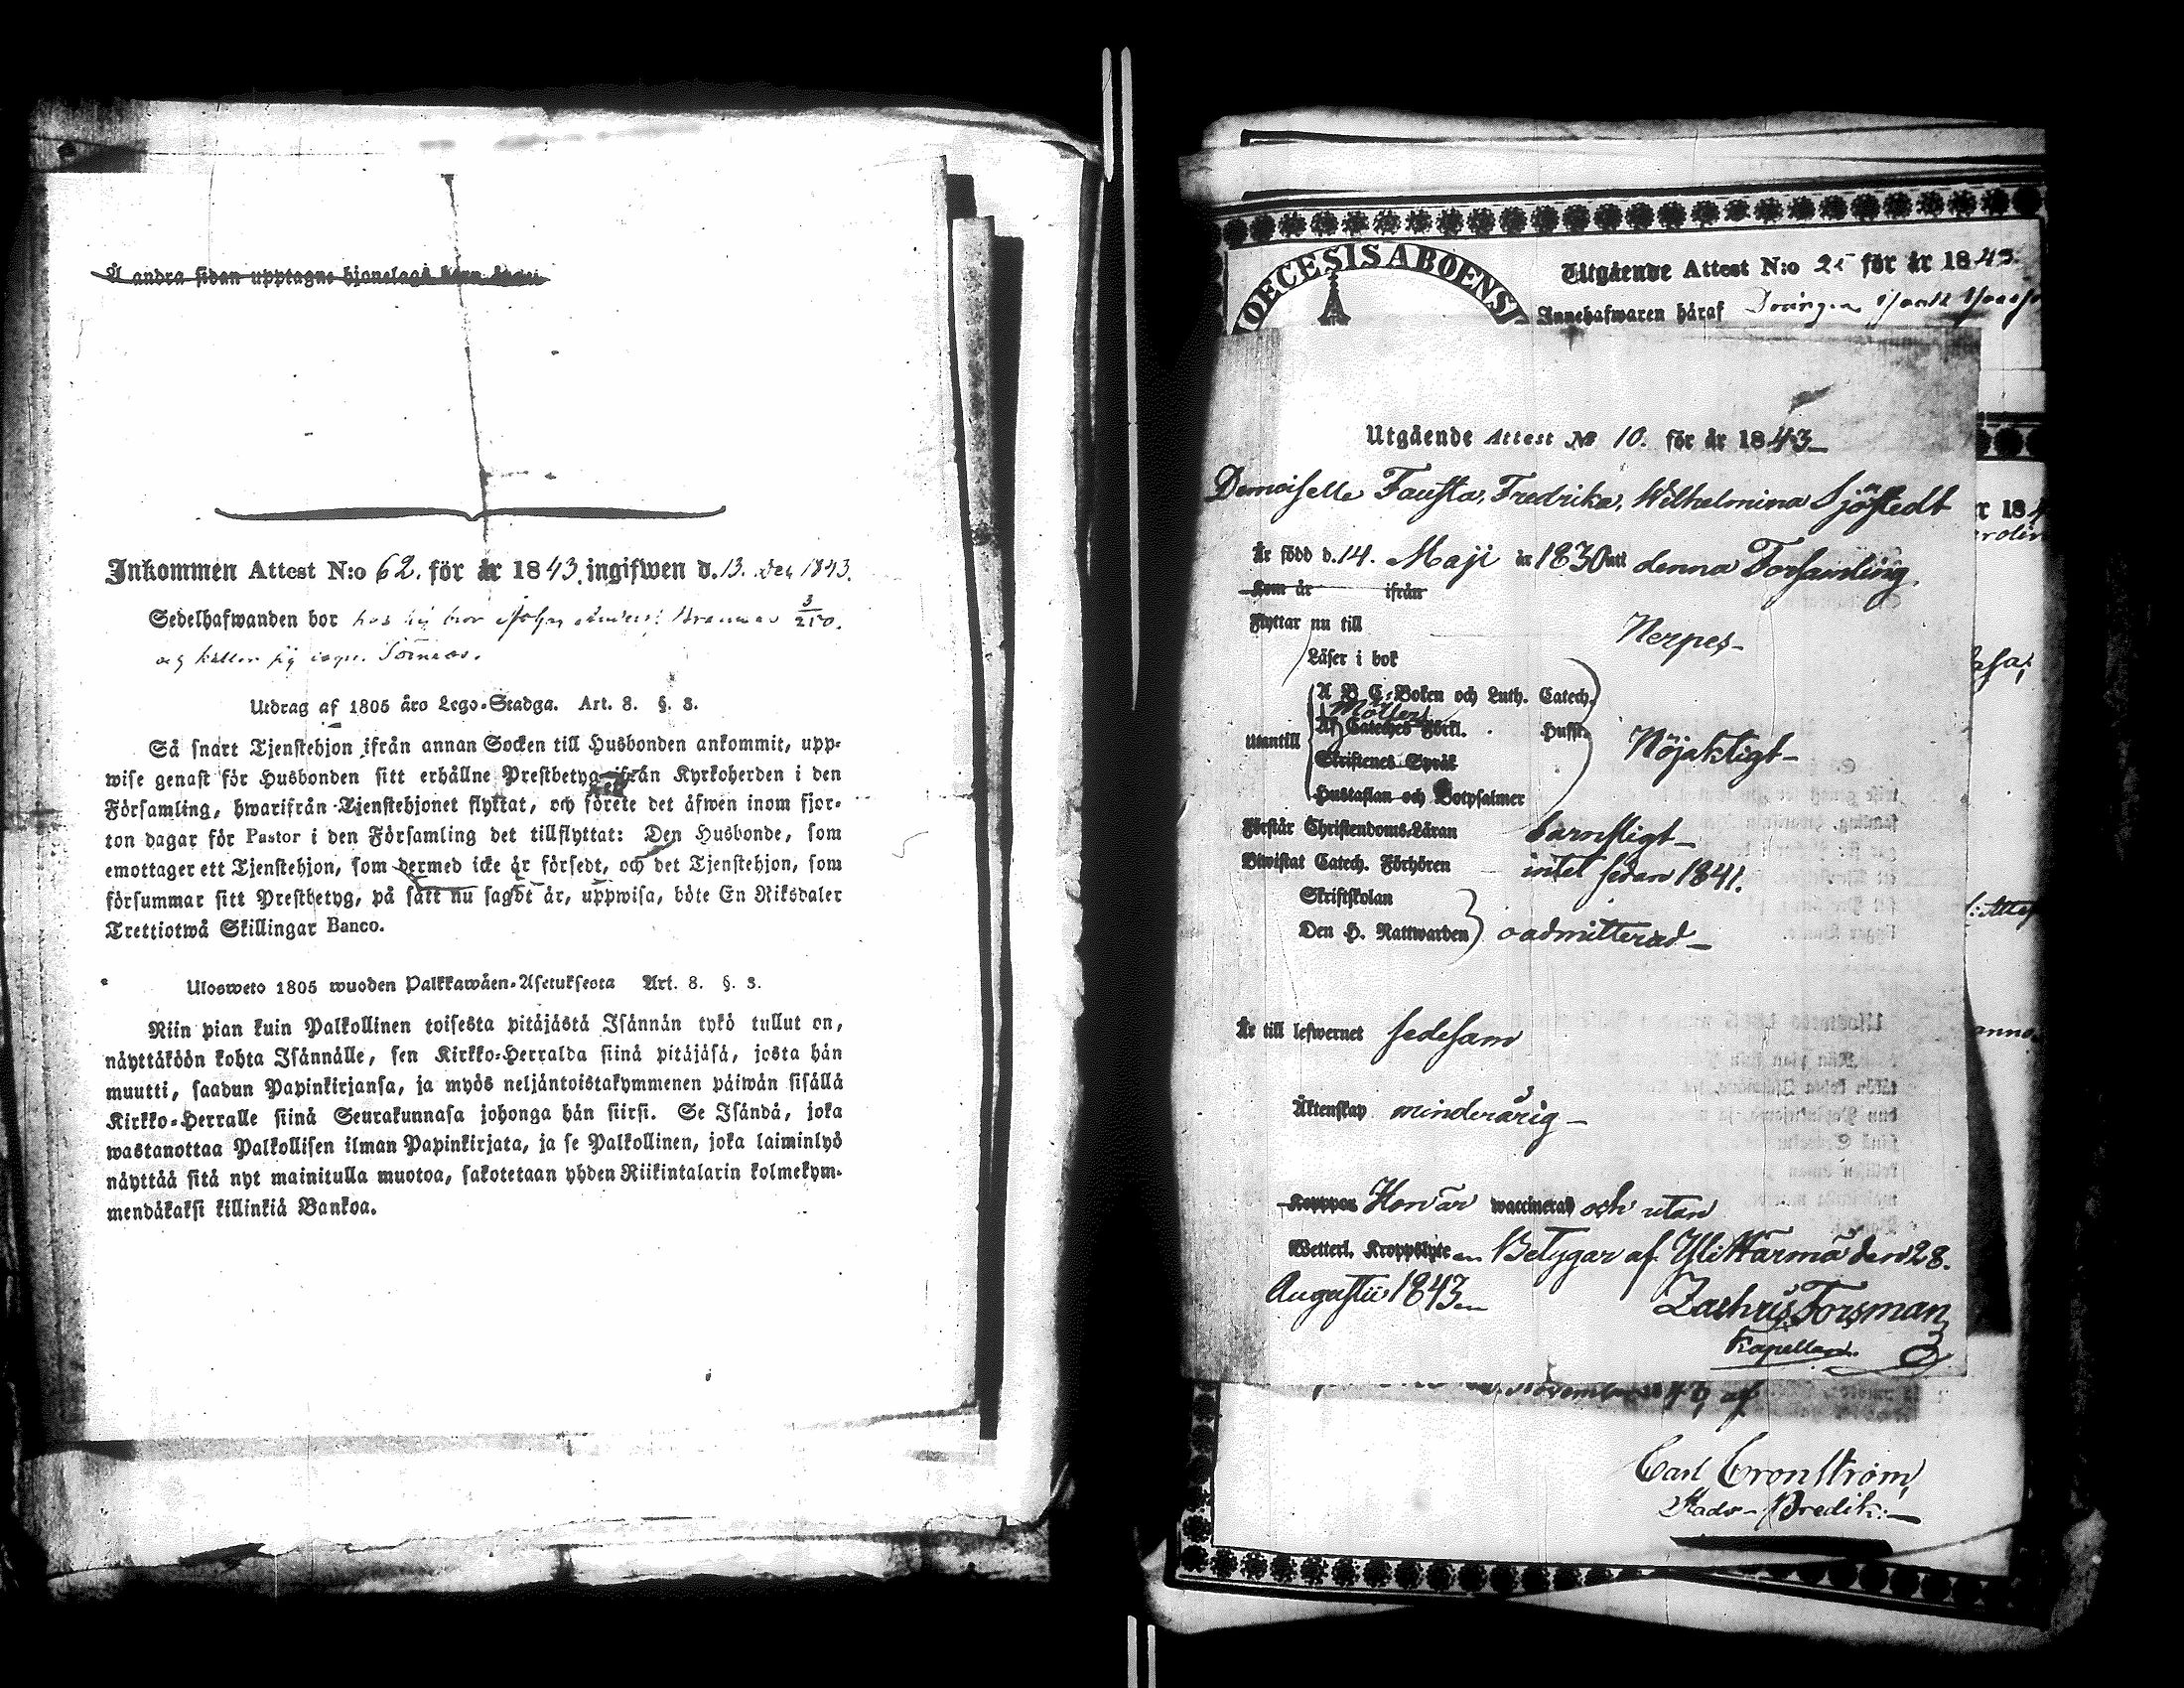 Å andra sidan upptagne hjonelags
Inkommen Attest N:o 62. för år 1843. ingifwen d. 13. Dec 1843.
Sedelhafwanden bor hos 3/250.
Utdrag af 1805 års Lego-Stadga. Art. 8. §. 3.
Så snart Tjenstehjon ifrån annan Socken till Husbonden ankommit, upp-
wise genast för Husbonden sitt erhållne Prestbetyg ifrån Kyrkoherden i den
Församling, hwarifrån Tjenstehjonet flyttat, och förete det äfwen inom fjor-
ton dagar för Pastor i den Församling det tillflyttat: Den Husbonde, som
emottager ett Tjenstehjon, som dermed icke är försedt, och det Tjenstehjon, som
försummar sitt Prestbetyg, på sätt nu sagdt är, uppwisa, böte En Riksdaler
Trettiotwå Skillingar Banco.
Ulosweto 1805 wuoden Palkkawäen-Asetuksesta Art. 8. §. 3.
Niin pian kuin Palkollinen toisesta pitäjästä Isännän tykö tullut on,
näyttäköön kohta Isännälle, sen Kirkko-Herralda siinä pitäjäsä, josta hän
muutti, saadun Papinkirjansa, ja myös neljäntoistakymmenen päiwän sisällä
Kirkko-Herralle siinä Seurakunnasa johonga hän siirsi. Se Isändä, joka
wastanottaa Palkollisen ilman Papinkirjata, ja se Palkollinen, joka laiminlyö
näyttää sitä nyt mainitulla muotoa, sakotetaan yhden Riikintalarin kolmekym-
mendäkaksi killinkiä Bankoa.
OECESIS ABOENSI
Utgående Attest N:o 25 för år 1843.
Innehafwaren häraf Drängen
Utgående Attest No 10. för år 1843
Demoiselle Fausta, Fredrika, Wilhelmina Sjöstedt
Är född d. 14. Maji år 1830 uti denna Församling.
Kom år ifrån
Flyttar nu till Nerpes
Läser i bok
Utantill A B C-Boken och Luth. Catech.
Möllers
Af Cateches Förkl. Husfl.
Skriftenes Språk Nöjaktigt
Hustaflan och Botpsalmer
Förstår Christendoms-Läran barnsligt
Biwistat Catech. Förhören intet sedan 1841.
Skriftskolan
Den H. Nattwarden oadmitterad
Är till lefwernet sedesam
Äktenskap minderårig
Kopppor Hon är waccinerad och utan
Wetterl. Kroppslyte Betygar af Ylihärmä den 28.
Augusti 1843
Zachris Forsman
Kapellan.
November 1843 af
Carl Cronström,
Stads-Predik: